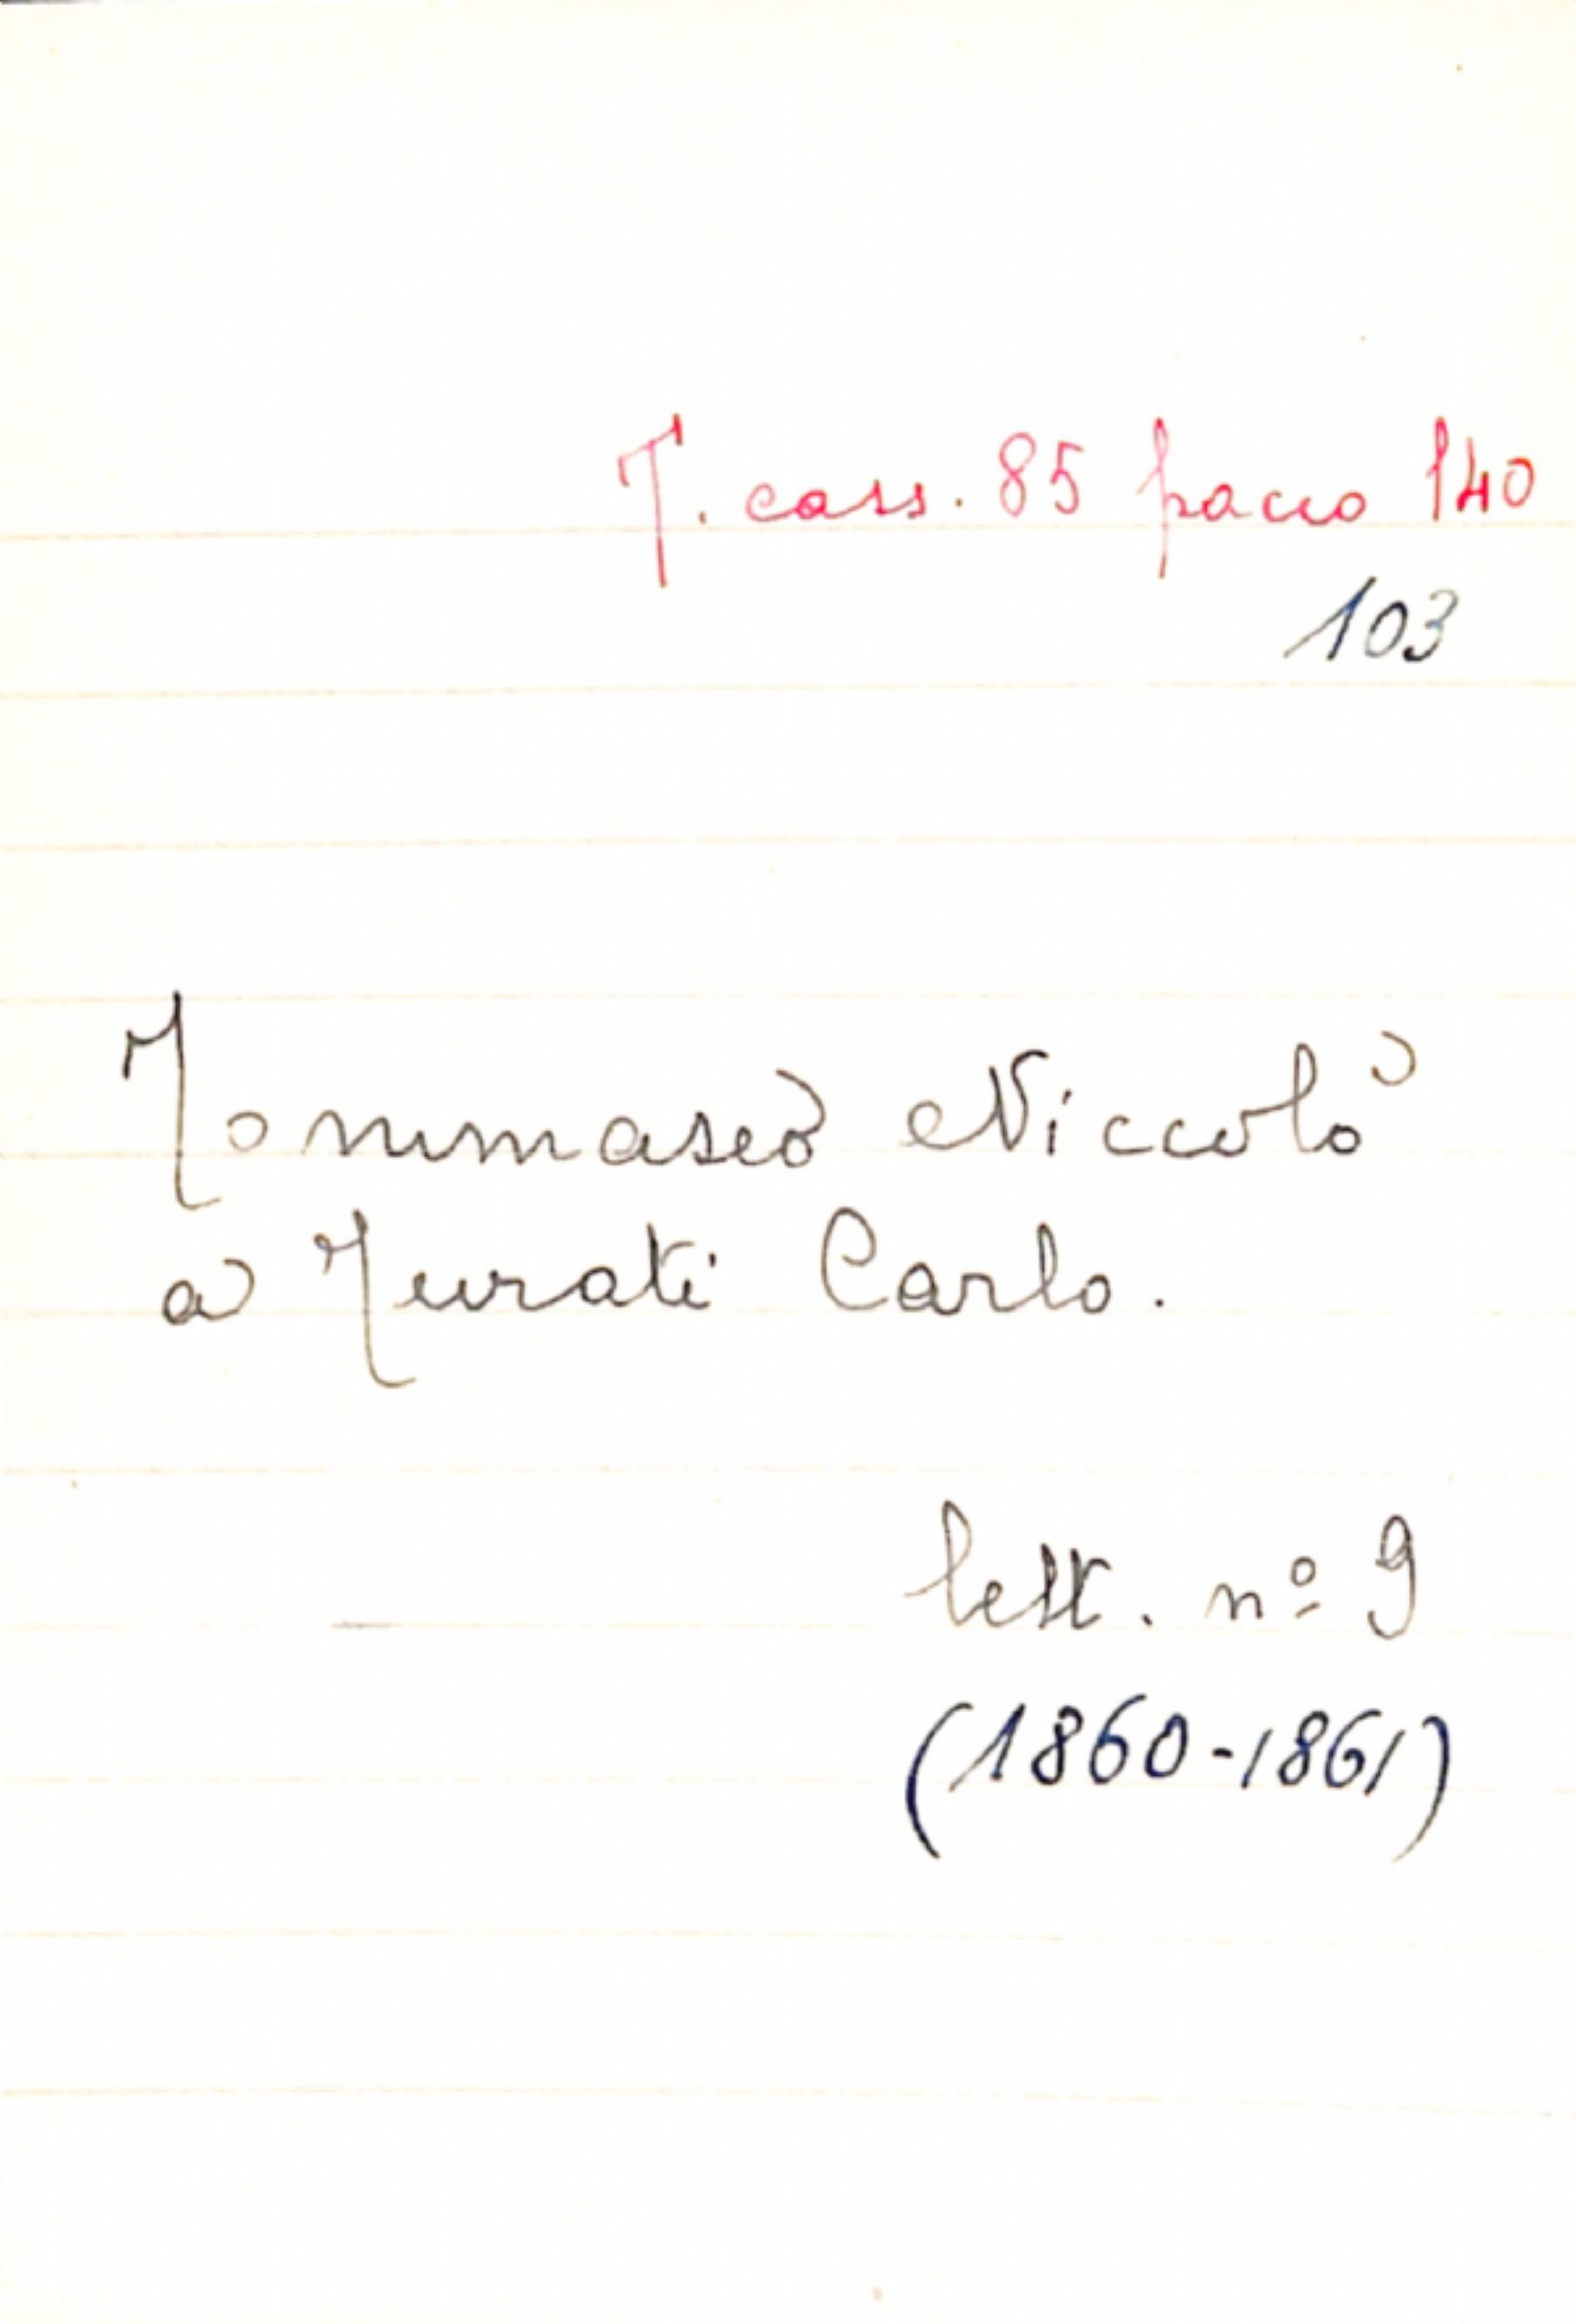 T. cass. 85 pacco 140
103
Tommaseo Niccolò
a Turati Carlo.
lett. nº 9
(1860-1861)